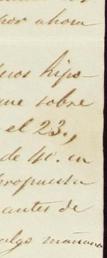 por ahora
eros hipo-
que sobre
el 23,
de 4º. en
propuesta
antes de
algo mañana